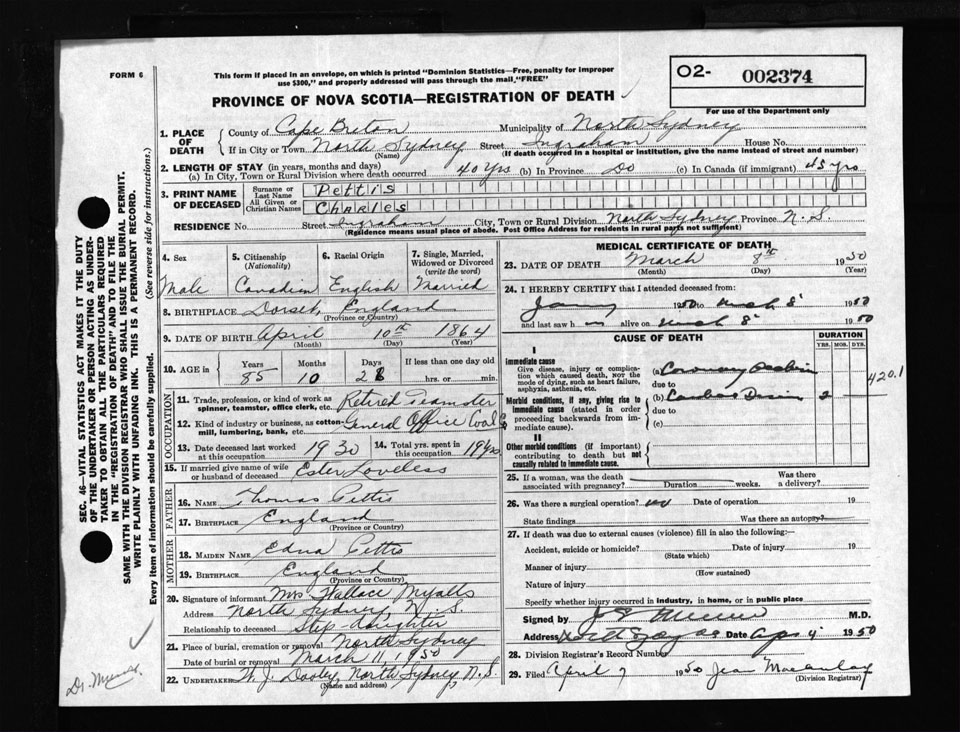 FORM 6
This form if placed in an envelope, on which is printed "Dominion Statistics—Free, penalty for improper
use $300," and properly addressed will pass through the mail, "FREE"
PROVINCE OF NOVA SCOTIA—REGISTRATION OF DEATH
O2- 002374
For use of the Department only
1. PLACE OF DEATH
County of Cape Breton Municipality of North Sydney
If in City or Town North Sydney Street Ingraham House No.
(Name) (If death occurred in a hospital or institution, give the name instead of street and number)
2. LENGTH OF STAY (in years, months and days)
(a) In City, Town or Rural Division where death occurred 40 yrs (b) In Province Do (c) In Canada (if immigrant) 45 yrs
3. PRINT NAME OF DECEASED
Surname or Last Name Pettis
All Given or Christian Names Charles
RESIDENCE No. Street Ingraham City, Town or Rural Division North Sydney Province N. S.
(Residence means usual place of abode. Post Office Address for residents in rural parts not sufficient)
4. Sex Male
5. Citizenship (Nationality) Canadian
6. Racial Origin English
7. Single, Married, Widowed or Divorced (write the word) Married
8. BIRTHPLACE Dorset, England
(Province or Country)
9. DATE OF BIRTH April 10th 1864
(Month) (Day) (Year)
10. AGE in Years Months Days If less than one day old
85 10 28 hrs. or min.
OCCUPATION
11. Trade, profession, or kind of work as spinner, teamster, office clerk, etc. Retired Teamster
12. Kind of industry or business, as cotton-mill, lumbering, bank, etc. General Office Coal
13. Date deceased last worked at this occupation 1930
14. Total yrs. spent in this occupation
15. If married give name of wife or husband of deceased Ester Loveless
FATHER
16. NAME Thomas Pettis
17. BIRTHPLACE England
(Province or Country)
MOTHER
18. MAIDEN NAME Edna Pettis
19. BIRTHPLACE England
(Province or Country)
20. Signature of informant Mrs Wallace Myalls
Address North Sydney N. S.
Relationship to deceased Step-daughter
21. Place of burial, cremation or removal North Sydney
Date of burial or removal March 11, 1950
22. UNDERTAKER W. J. Dooley, North Sydney N. S.
(Name and address)
MEDICAL CERTIFICATE OF DEATH
23. DATE OF DEATH March 8th 1950
(Month) (Day) (Year)
24. I HEREBY CERTIFY that I attended deceased from:
1950 to March 8 1950
and last saw h m alive on March 8 1950
CAUSE OF DEATH
DURATION
YRS. MOS. DYS.
I
Immediate cause
Give disease, injury or complication which caused death, NOT the mode of dying, such as heart failure, asphyxia, asthenia, etc.
(a) Coronary
due to
Morbid conditions, if any, giving rise to immediate cause (stated in order proceeding backwards from immediate cause).
(b) 2
due to
(c)
420.1
II
Other morbid conditions (if important) contributing to death but not causally related to immediate cause.
25. If a woman, was the death associated with pregnancy? Duration weeks. Was there a delivery?
26. Was there a surgical operation? no Date of operation 19
State findings Was there an autopsy?
27. If death was due to external causes (violence) fill in also the following:—
Accident, suicide or homicide? Date of injury 19
(State which)
Manner of injury
(How sustained)
Nature of injury
Specify whether injury occurred in industry, in home, or in public place
Signed by M.D.
Address Date 4 1950
28. Division Registrar's Record Number
29. Filed April 7 1950 Jean Macaulay
(Division Registrar)
SEC. 46—VITAL STATISTICS ACT MAKES IT THE DUTY
OF THE UNDERTAKER OR PERSON ACTING AS UNDER-
TAKER TO OBTAIN ALL THE PARTICULARS REQUIRED
IN THE "REGISTRATION OF DEATH" AND TO FILE THE
SAME WITH THE DIVISION REGISTRAR WHO SHALL ISSUE THE BURIAL PERMIT.
WRITE PLAINLY WITH UNFADING INK. THIS IS A PERMANENT RECORD.
Every item of information should be carefully supplied. (See reverse side for instructions.)
Dr.